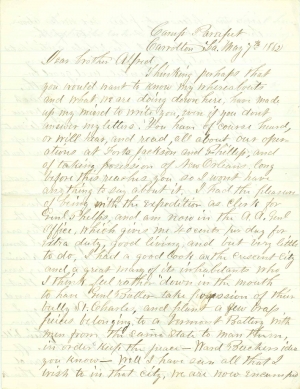 Camp Parapet
Carrollton La. May 7th 1862
Dear brother Alfred,
Thinking perhaps that
you would want to know my whereabouts
and what we are doing down here, have made
up my mind to write you, even if you don't
answer my letters. You have of course heard,
or will hear, and read, all about our oper-
ations at Forts Jackson and St Philip, and
of taking possession of New Orleans, long
before this reaches you, so I wont have
anything to say about it. I had the pleasure
of being with the expedition as clerk for
Genl Phelps, and am now in the A. A. Genl
Office, which gives me 40 cents per day for
extra duty, good living, and but very little
to do. I had a good look at the Crescent City
and a great many of its inhabitants who
I think feel rather down in the mouth
to have Genl Butler take possession of their
bully St. Charles, and plant a few brass
pieces belonging to a Vermont Battery, with
men from the same State to man them,
in order keep the peace
you know — Well I have seen all that I
wish to in that city, we are now encamped